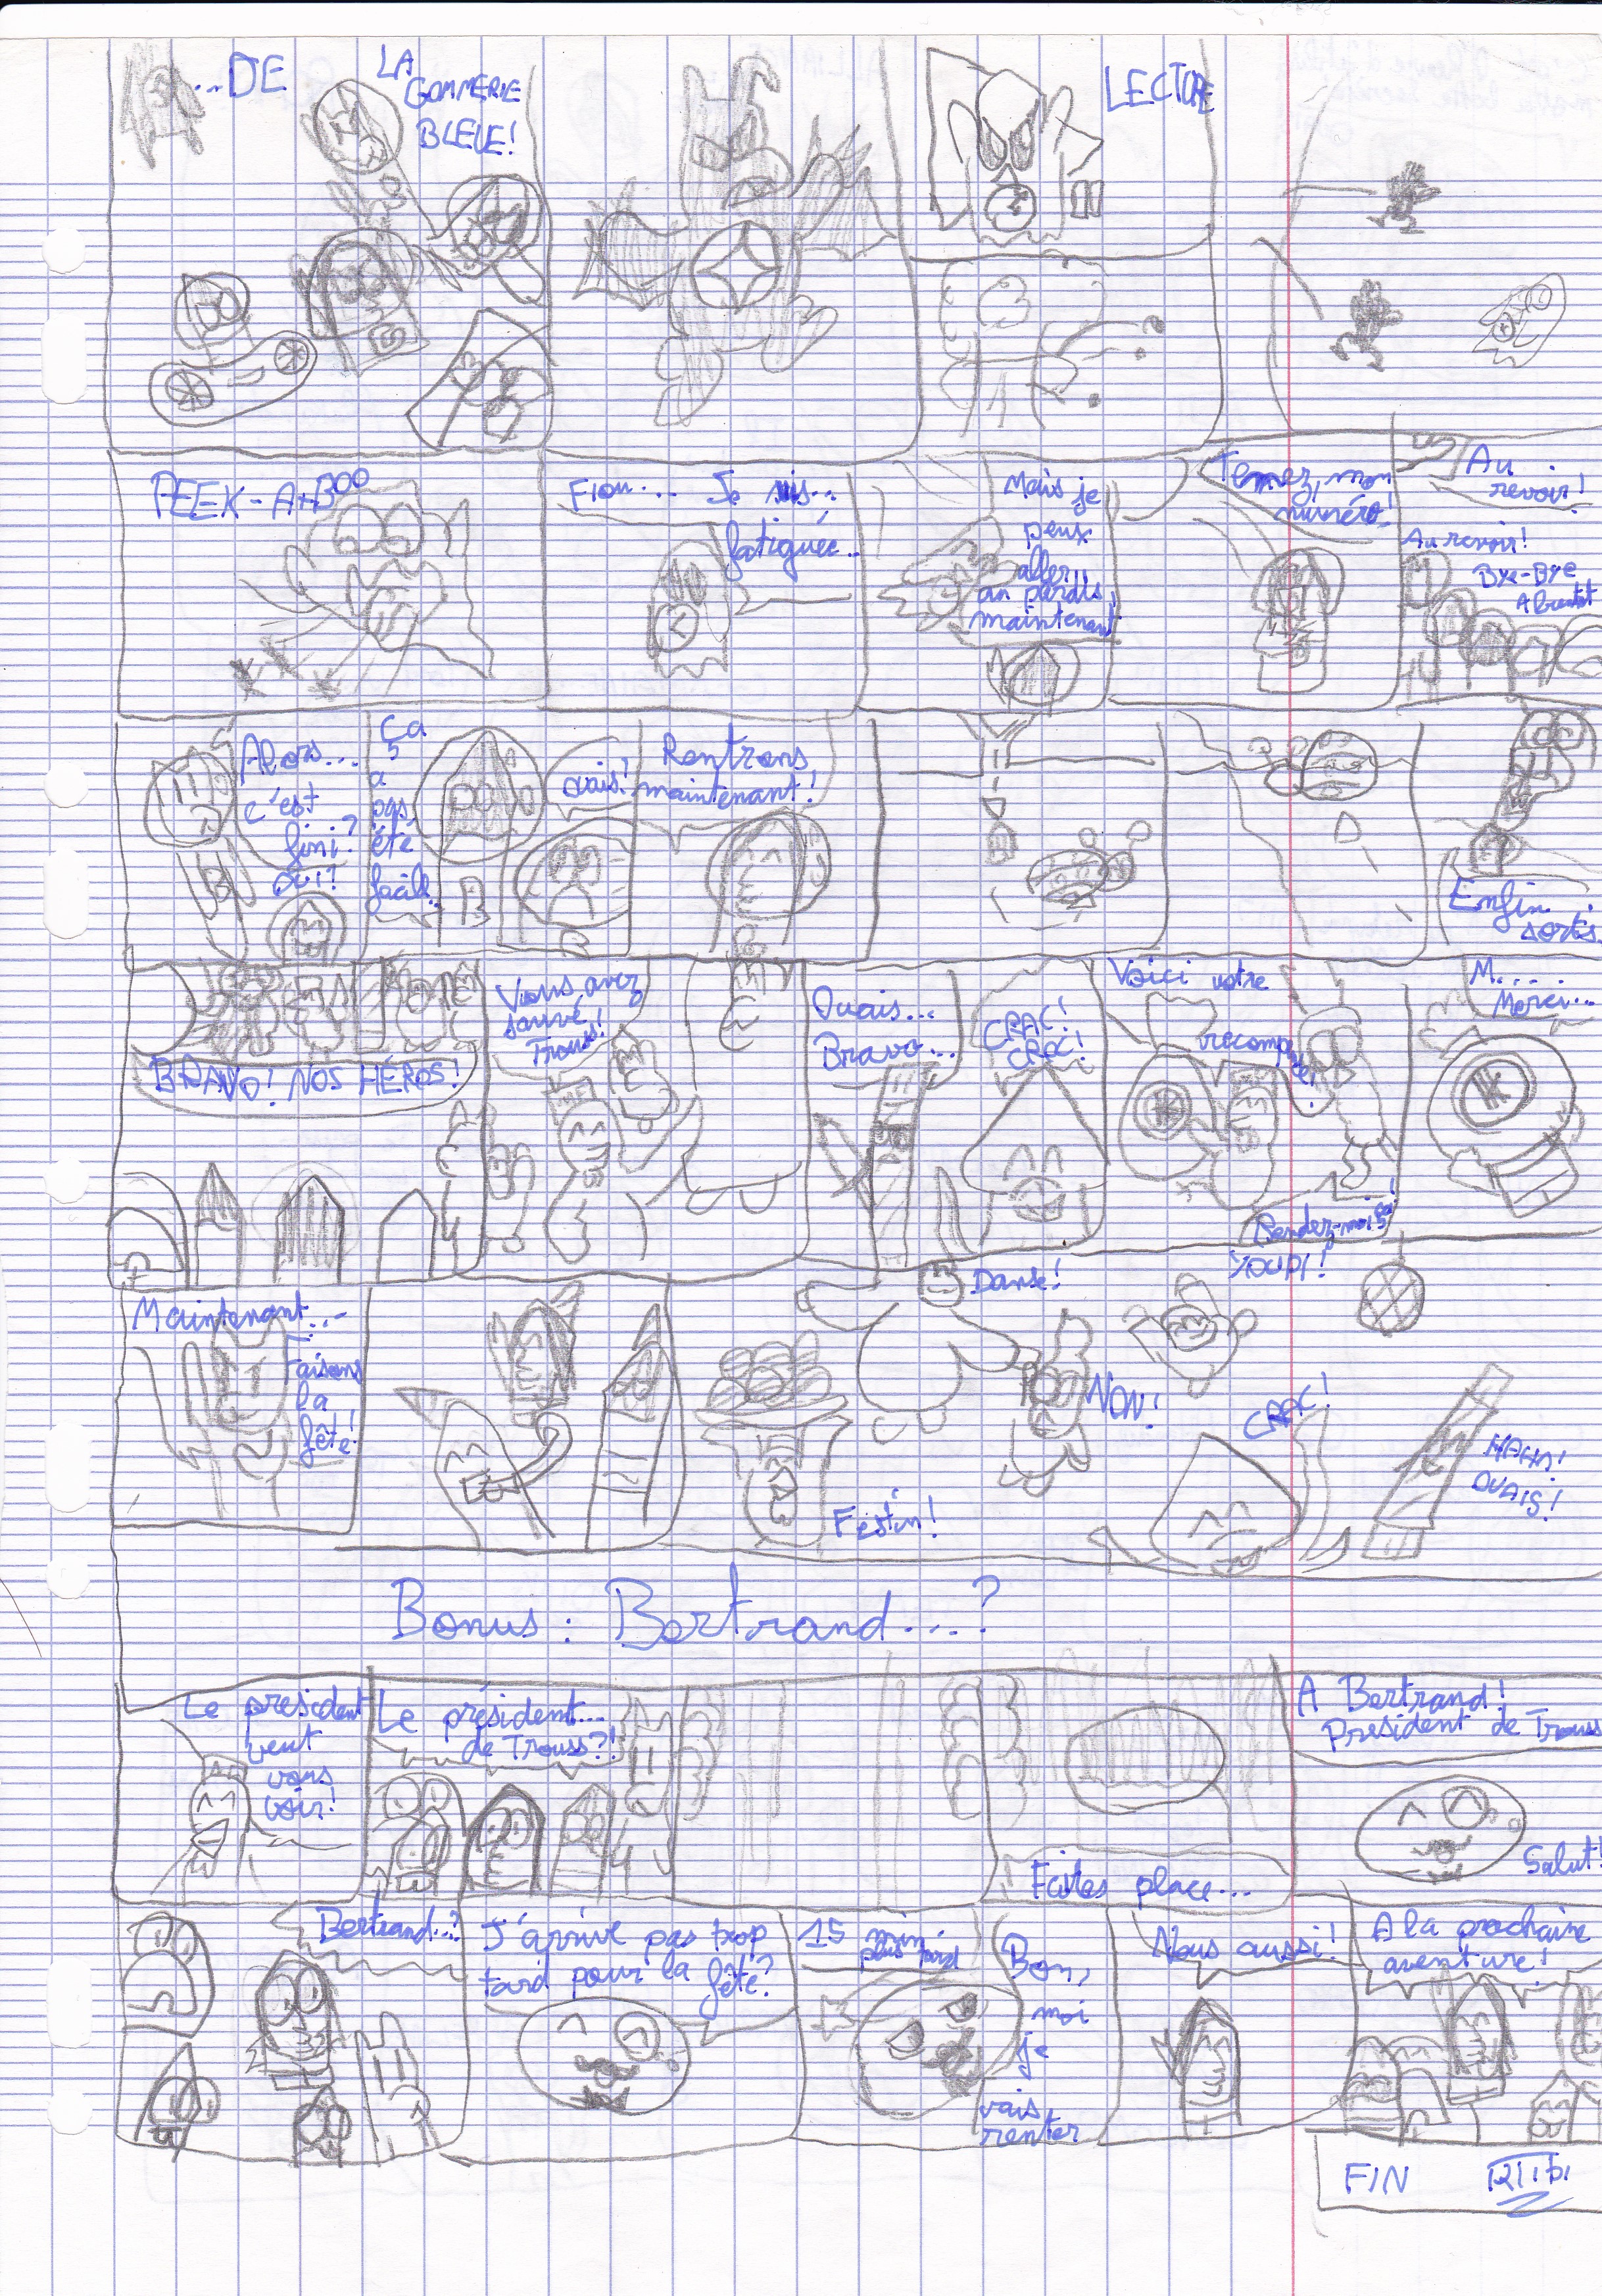 ...DE
LA
GOMMERIE
BLEUE!
LECTURE
PEEK-A-BOO
Fiou... Je suis...
fatiguée...
Mais je
peux
aller
au paradis,
maintenant
Tennez, mon
numéro!
Au
revoir!
Au revoir!
Bye-Bye
A bientôt
Alors...
c'est
fini?
Ça
a
pas
été
facile..
ouais!
Rentrons
maintenant!
Enfin
sortis.
BRAVO! NOS HÉROS!
Vous avez
sauvé
Trouss!
Ouais...
Bravo...
CRAC!
CRAC!
Voici votre
récompense!
Rendez-moi ça!
M...
Merci...
Maintenant...
Faisons
la
fête!
Festin!
Danse!
NON!
YOUPI!
CRAC!
HAHA!
OUAIS!
Bonus: Bertrand...?
Le president
veut
vous
voir!
Le président...
de Trouss?!
Faites place...
A Bertrand!
President de Trouss
Salut!
Bertrand..?
J'arrive pas trop
tard pour la fête?
15 min
plus tard
Bon,
moi
je
vais
renter
Nous aussi!
A la prochaine
aventure!
FIN